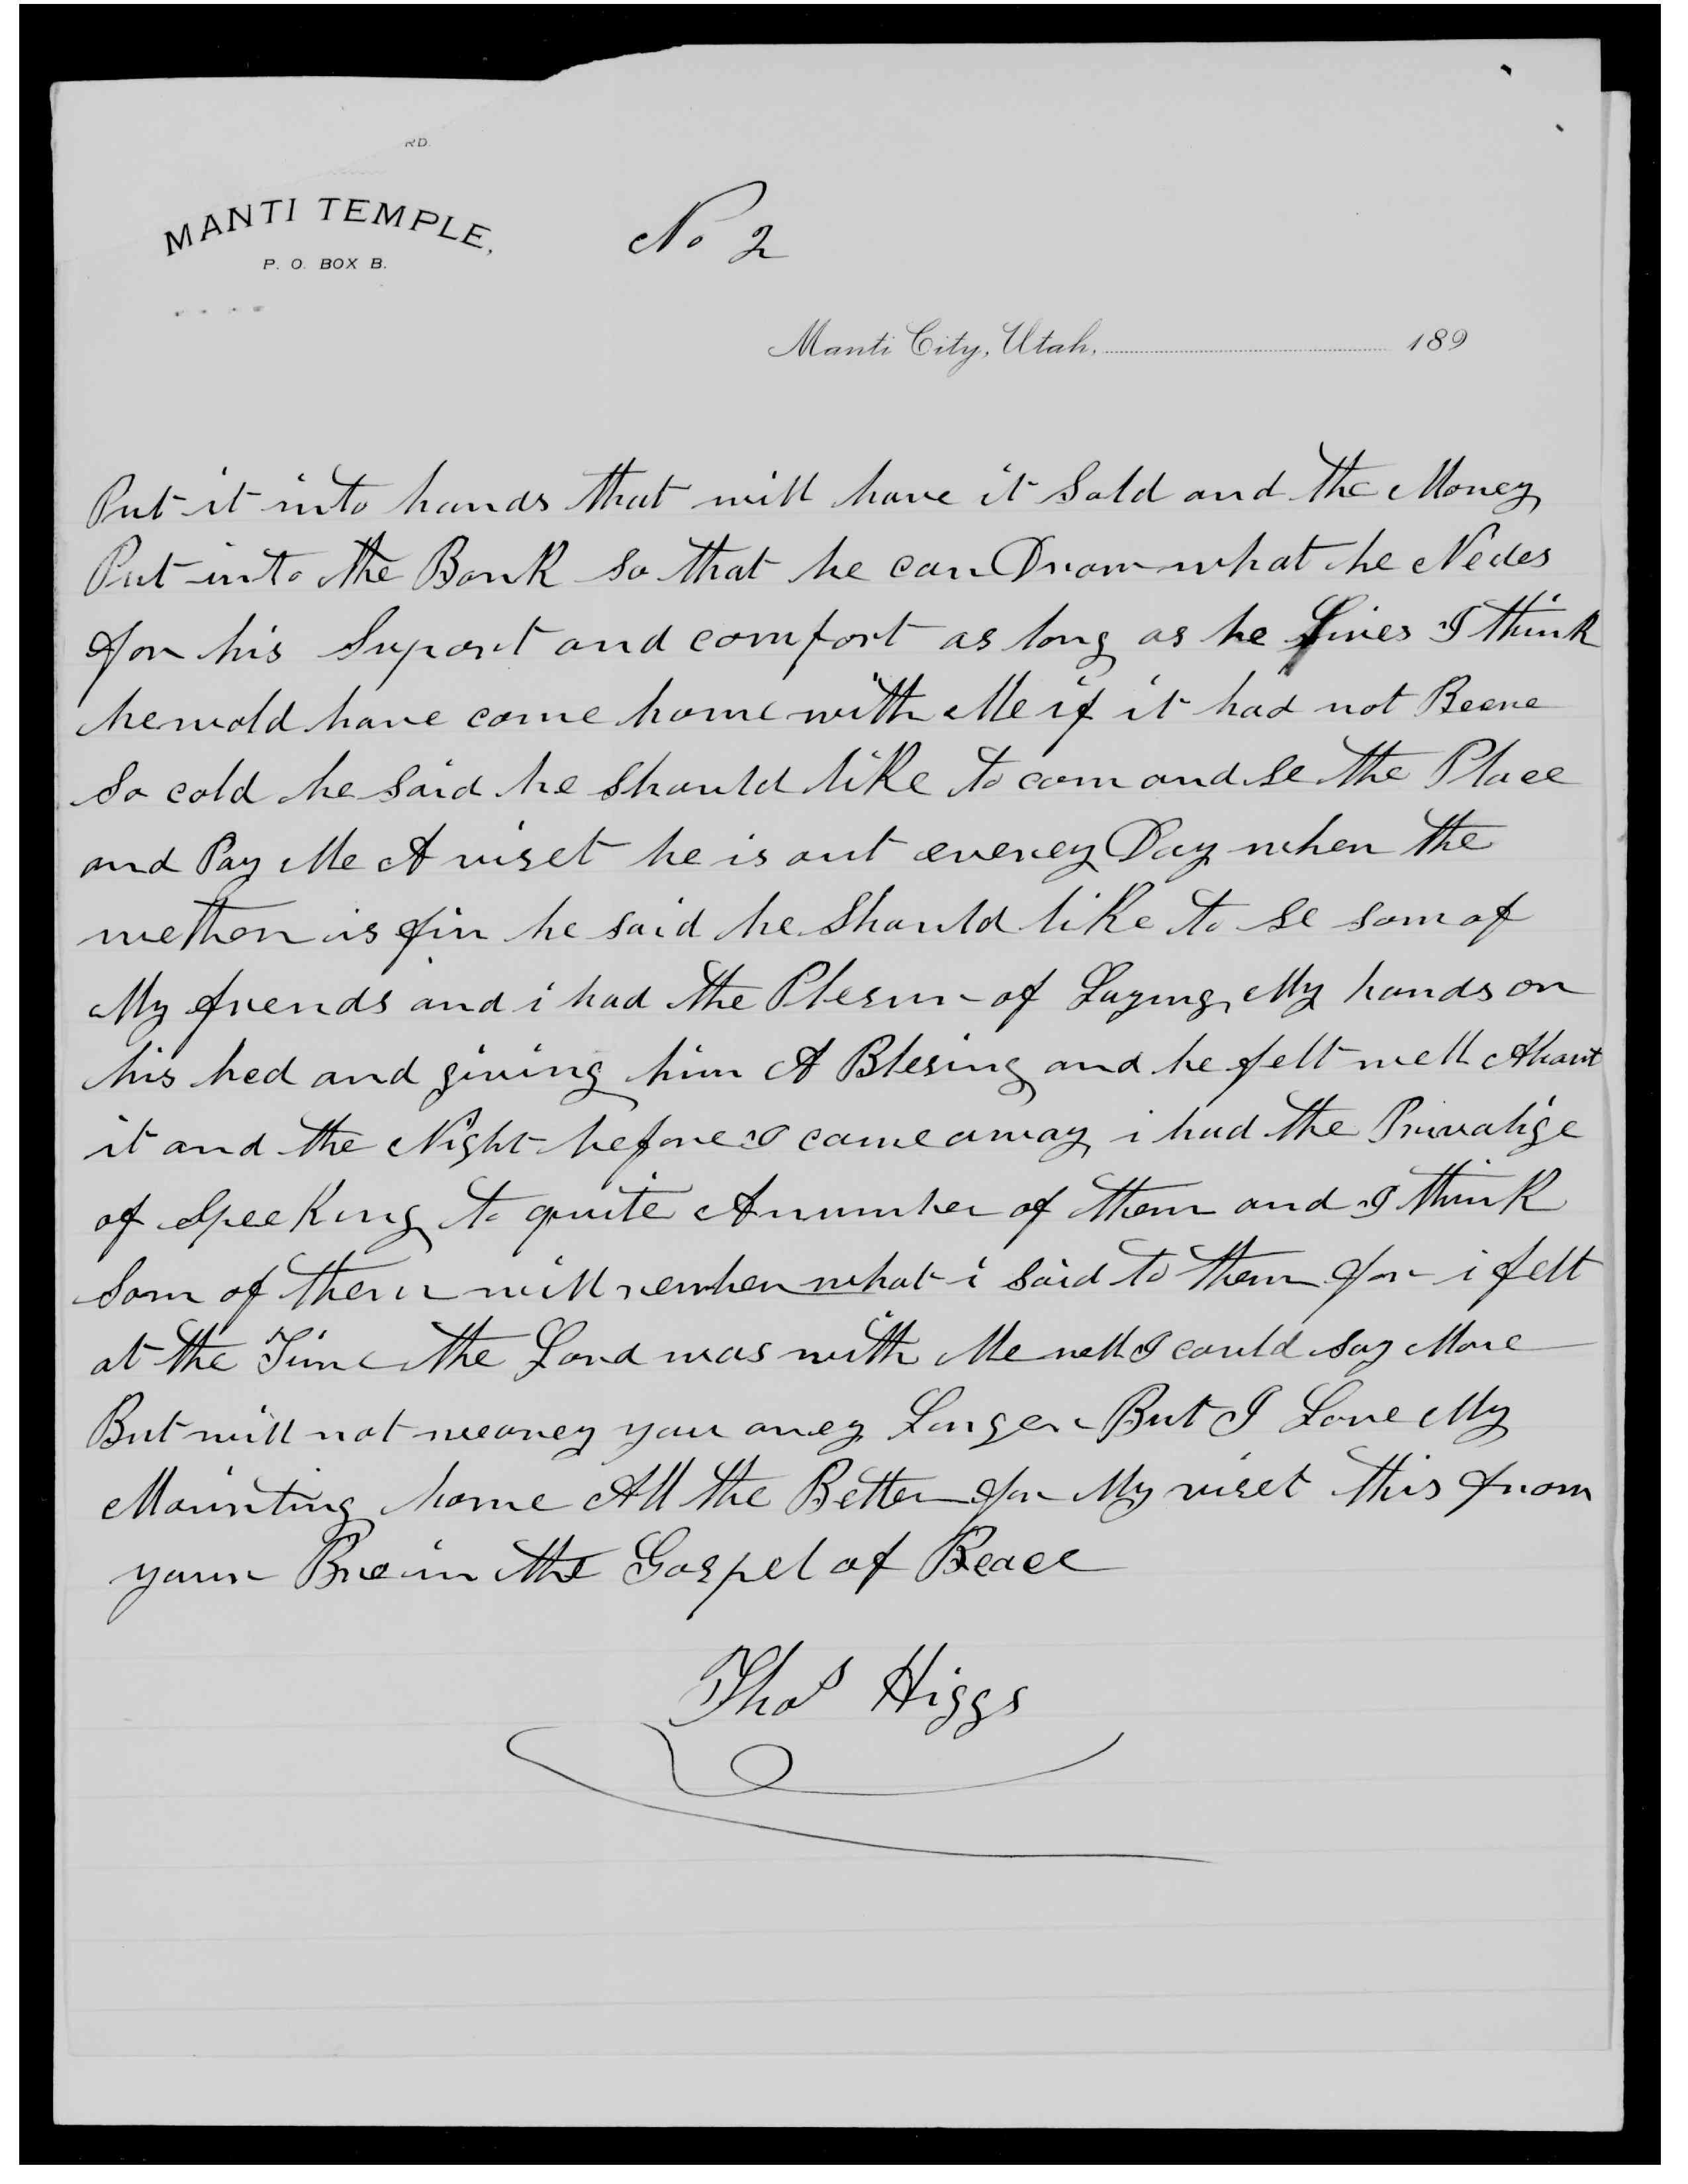 RD.
MANTI TEMPLE,
P. O. BOX B.
No 2
Manti City, Utah, 189
Put it into hands that will have it Sold and the Money
Put into the Bank so that he can Draw what he Nedes
for his Suport and comfort as long as he Lives I think
he wold have come home with Me if it had not Beene
so cold he said he should like to com and se the Place
and Pay Me A viset he is out everey Day when the
wether is fin he said he should like to se som of
My friends and i had the Plesur of Laying My hands on
his hed and giving him A Blesing and he felt well About
it and the Night before I came away i had the Privalige
of Speeking to quite A number of them and I think
Som of them will rember what i said to them for i felt
at the Time the Lord was with Me well I could say More
But will not wearey you aney Longer But I Love My
Mounting home All the Better for My viset this from
your Bro in the Gospel of Peace
Thos Higgs